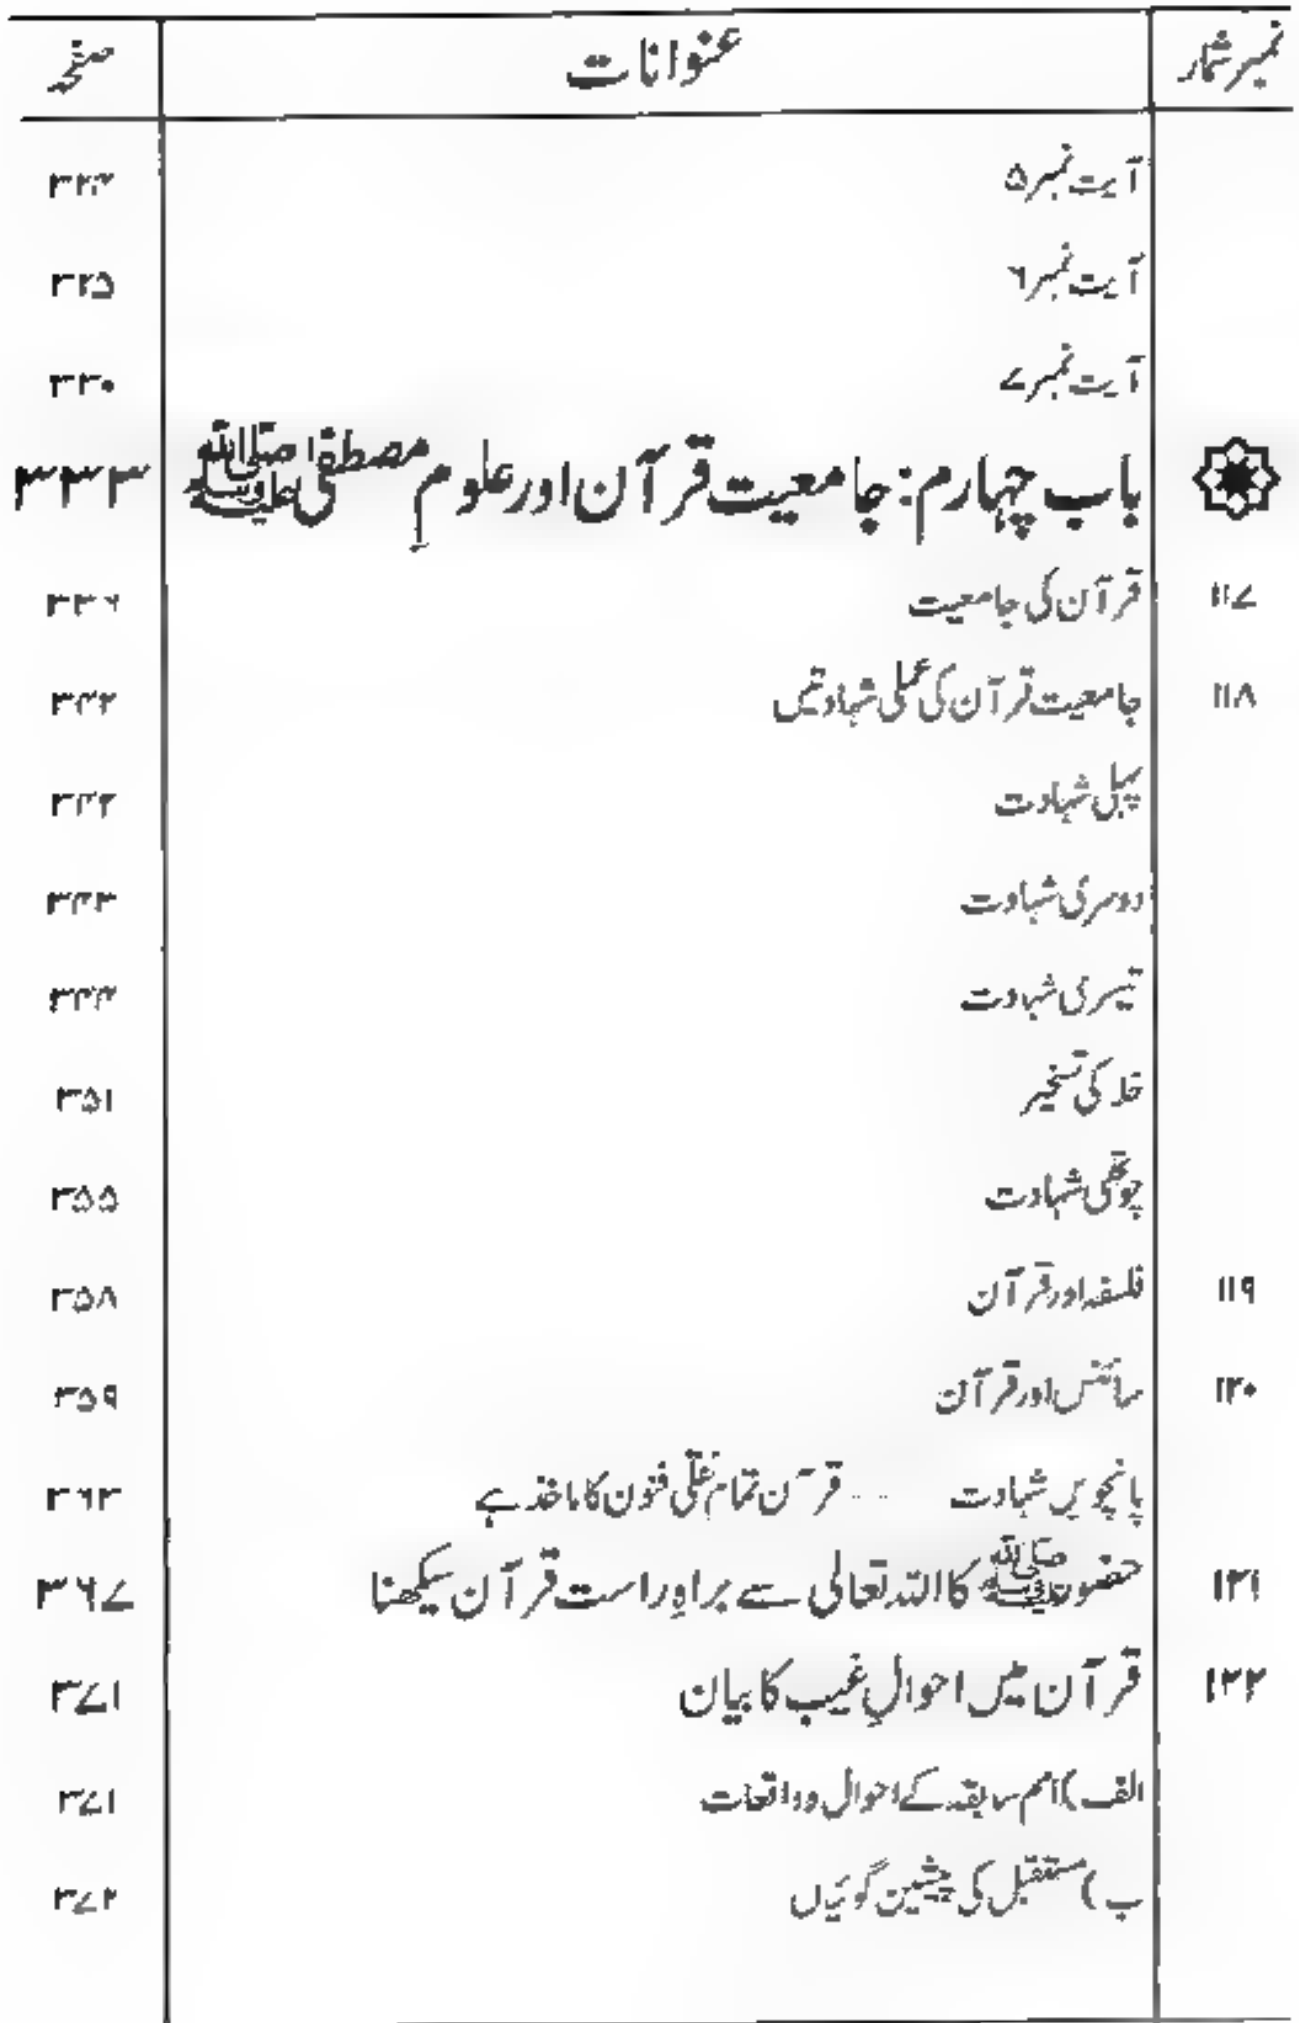 نمبر شمار عنوانات صفحہ
آیت نمبر ۵ ۳۲۴
آیت نمبر ۶ ۳۲۵
آیت نمبر ۷ ۳۳۰
باب چہارم: جامعیت قرآن اور علومِ مصطفیٰ ﷺ ۳۳۳
۱۱۷ قرآن کی جامعیت ۳۳۶
۱۱۸ جامعیت قرآن کی عملی شہادتیں ۳۴۲
پہلی شہادت ۳۴۲
دوسری شہادت ۳۴۳
تیسری شہادت ۳۴۴
خلا کی تسخیر ۳۵۱
چوتھی شہادت ۳۵۵
۱۱۹ فلسفہ اور قرآن ۳۵۸
۱۲۰ سائنس اور قرآن ۳۵۹
پانچویں شہادت ---- قرآن تمام عقلی فنون کا ماخذ ہے ۳۶۳
۱۲۱ حضور ﷺ کا اللہ تعالیٰ سے براہِ راست قرآن سیکھنا ۳۶۷
۱۲۲ قرآن میں احوالِ غیب کا بیان ۳۷۱
الف) امم سابقہ کے احوال و واقعات ۳۷۱
ب) مستقبل کی پیشین گوئیاں ۳۷۲